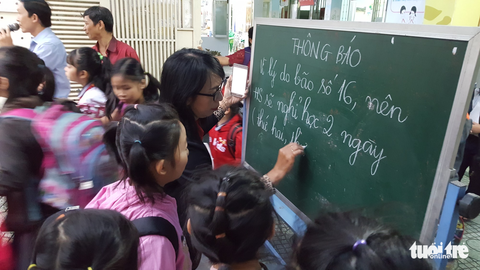 THÔNG BÁO
Vì lý do bão số 16, nên
HS sẽ nghỉ học 2 ngày
(thứ hai, th
tuổi trẻ
online